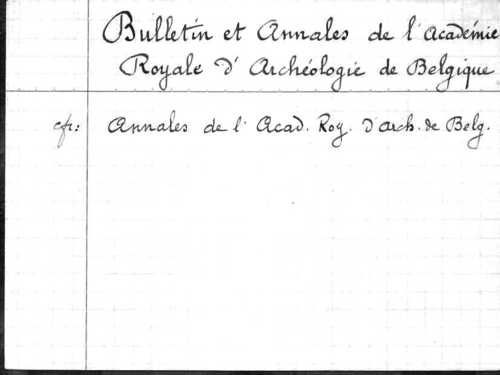 Bulletin et Annales de l'Académie
Royale d'Archéologie de Belgique
cfr: Annales de l'Acad. Roy. d'arch. de Belg.